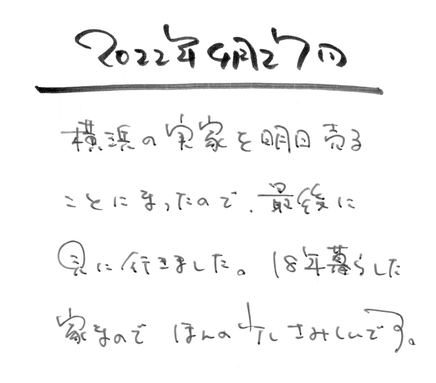 2022年4月27日
横浜の実家を明日売る
ことになったので、最後に
見に行きました。18年暮らした
家なので ほんの少しさみしいです。